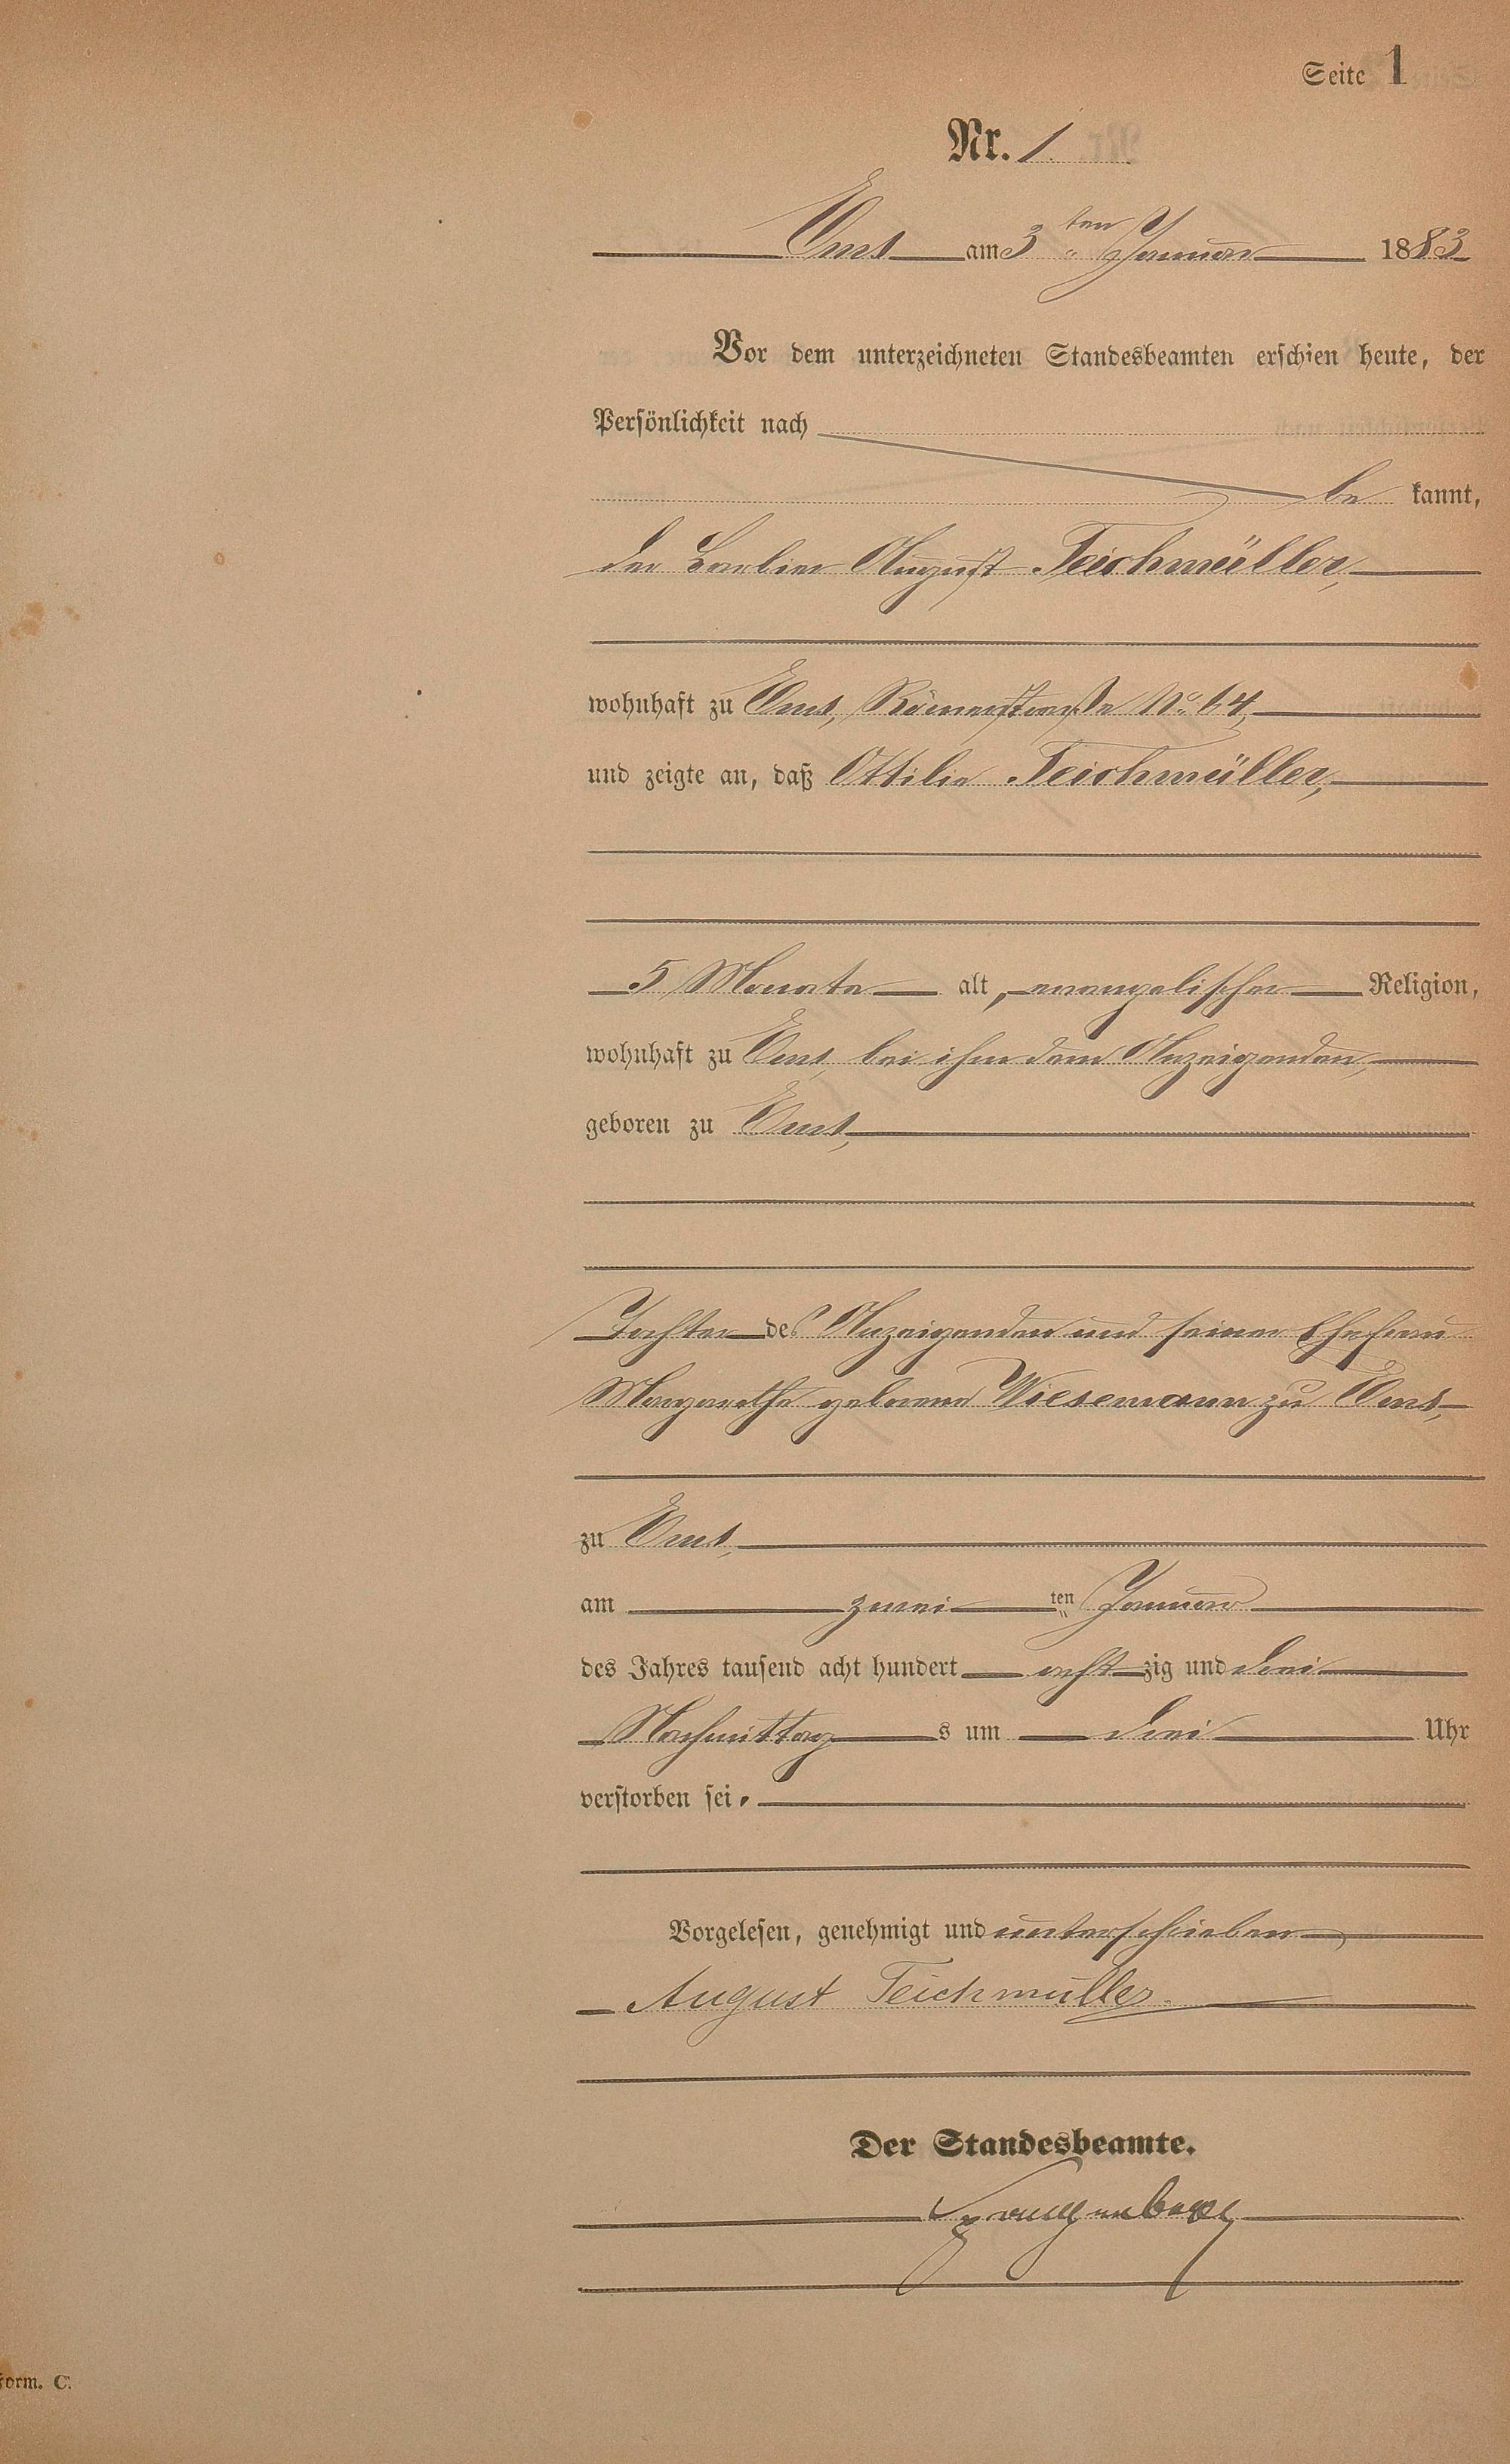 Seite 1
Nr. 1.
Ems am 3ten Januar 1883
Vor dem unterzeichneten Standesbeamten erschien heute, der
Persönlichkeit nach
be kannt,
der Barbier August Teichmüller,
wohnhaft zu Ems, Römerstraße No. 64,
und zeigte an, daß Ottilie Teichmüller,
5 Monate alt, evangelischer Religion,
wohnhaft zu Ems, bei ihm dem Anzeigenden,
geboren zu Ems,
Tochter des Anzeigenden und seiner Ehefrau
Margarethe geborene Wiesemann zu Ems,
zu Ems,
am zwei ten Januar
des Jahres tausend acht hundert acht zig und drei
Nachmittag s um drei Uhr
verstorben sei.
Vorgelesen, genehmigt und unterschrieben
August Teichmüller.
Der Standesbeamte.
Form. C.